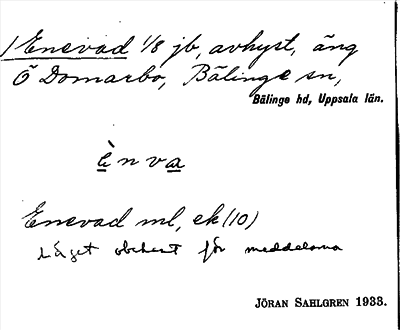 1 Enevad 1/8 jb, avhyst, äng
Ö Domarbo, Bälinge sn,
Bälinge hd, Uppsala län.
ènva
Enevad ml, ek (10)
Läget obekant för meddelarna
JÖRAN SAHLGREN 1933.